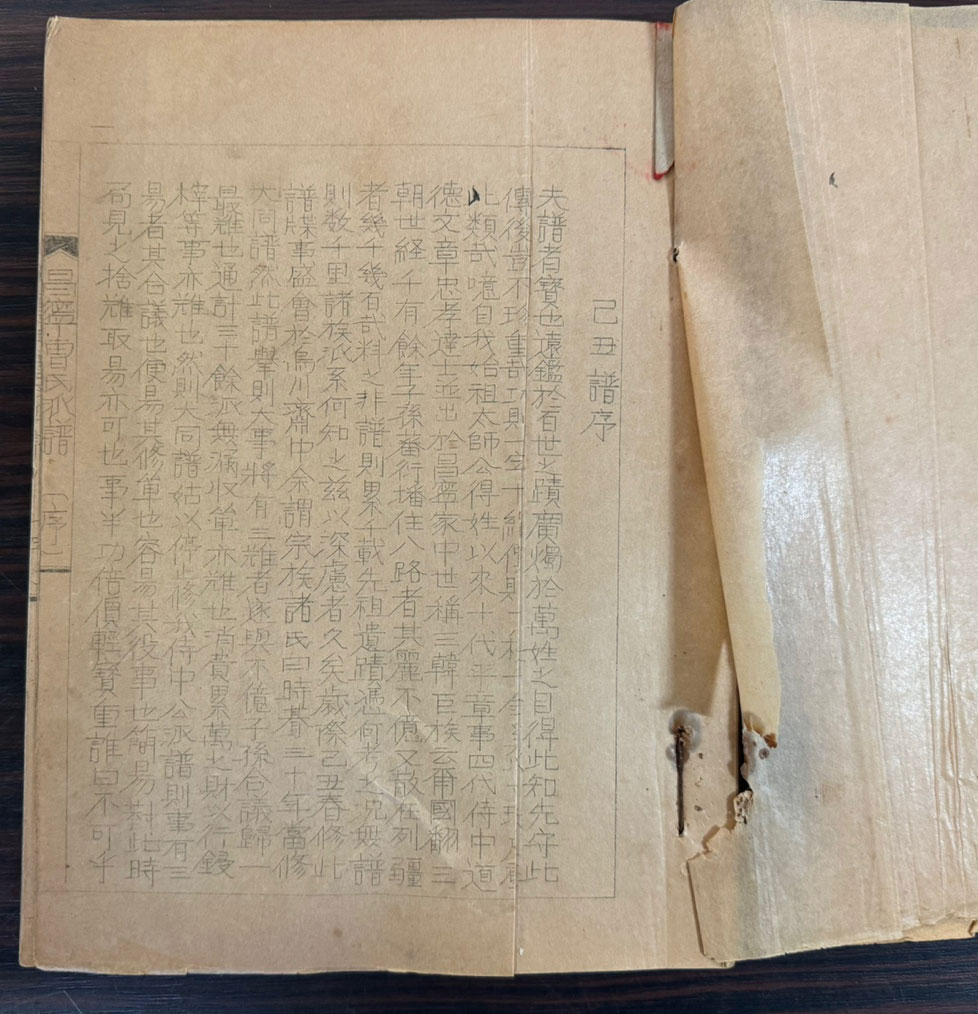 己丑譜序
夫譜者寶也遠鑑於百世之蹟廣燭於萬姓之目得此知先守此
傳後豈不珍重哉功則一字千
此類哉噫自我始祖太師公得姓以來十代平章事四代侍中道
德文章忠孝達士並出於昌寧家中世稱三韓巨族云爾國翻三
朝世経千有餘年子孫蕃衍播在八路者其麗不億又散在列疆
者幾千幾百哉料之非譜則累千載先祖遺蹟憑何考之况無譜
則数千里諸族派系何知之兹以深慮者久矣歲際己丑春修此
譜牒事盛會於烏川齋中余謂宗族諸氏曰時暮三十年當修
大同譜然此譜擧則大事將有三難者遂與不億子孫合議歸一
最難也通計三十餘派無漏收單亦難也消費累萬之財以行鋟
梓等事亦難也然則大同譜姑以停止修我侍中公派譜則事有三
易者其合議也便易其修單也容易其役事也簡易對此時
局見之捨難取易亦可也事半功倍價輕寶重誰曰不可乎
昌寧曺氏派譜 序 一